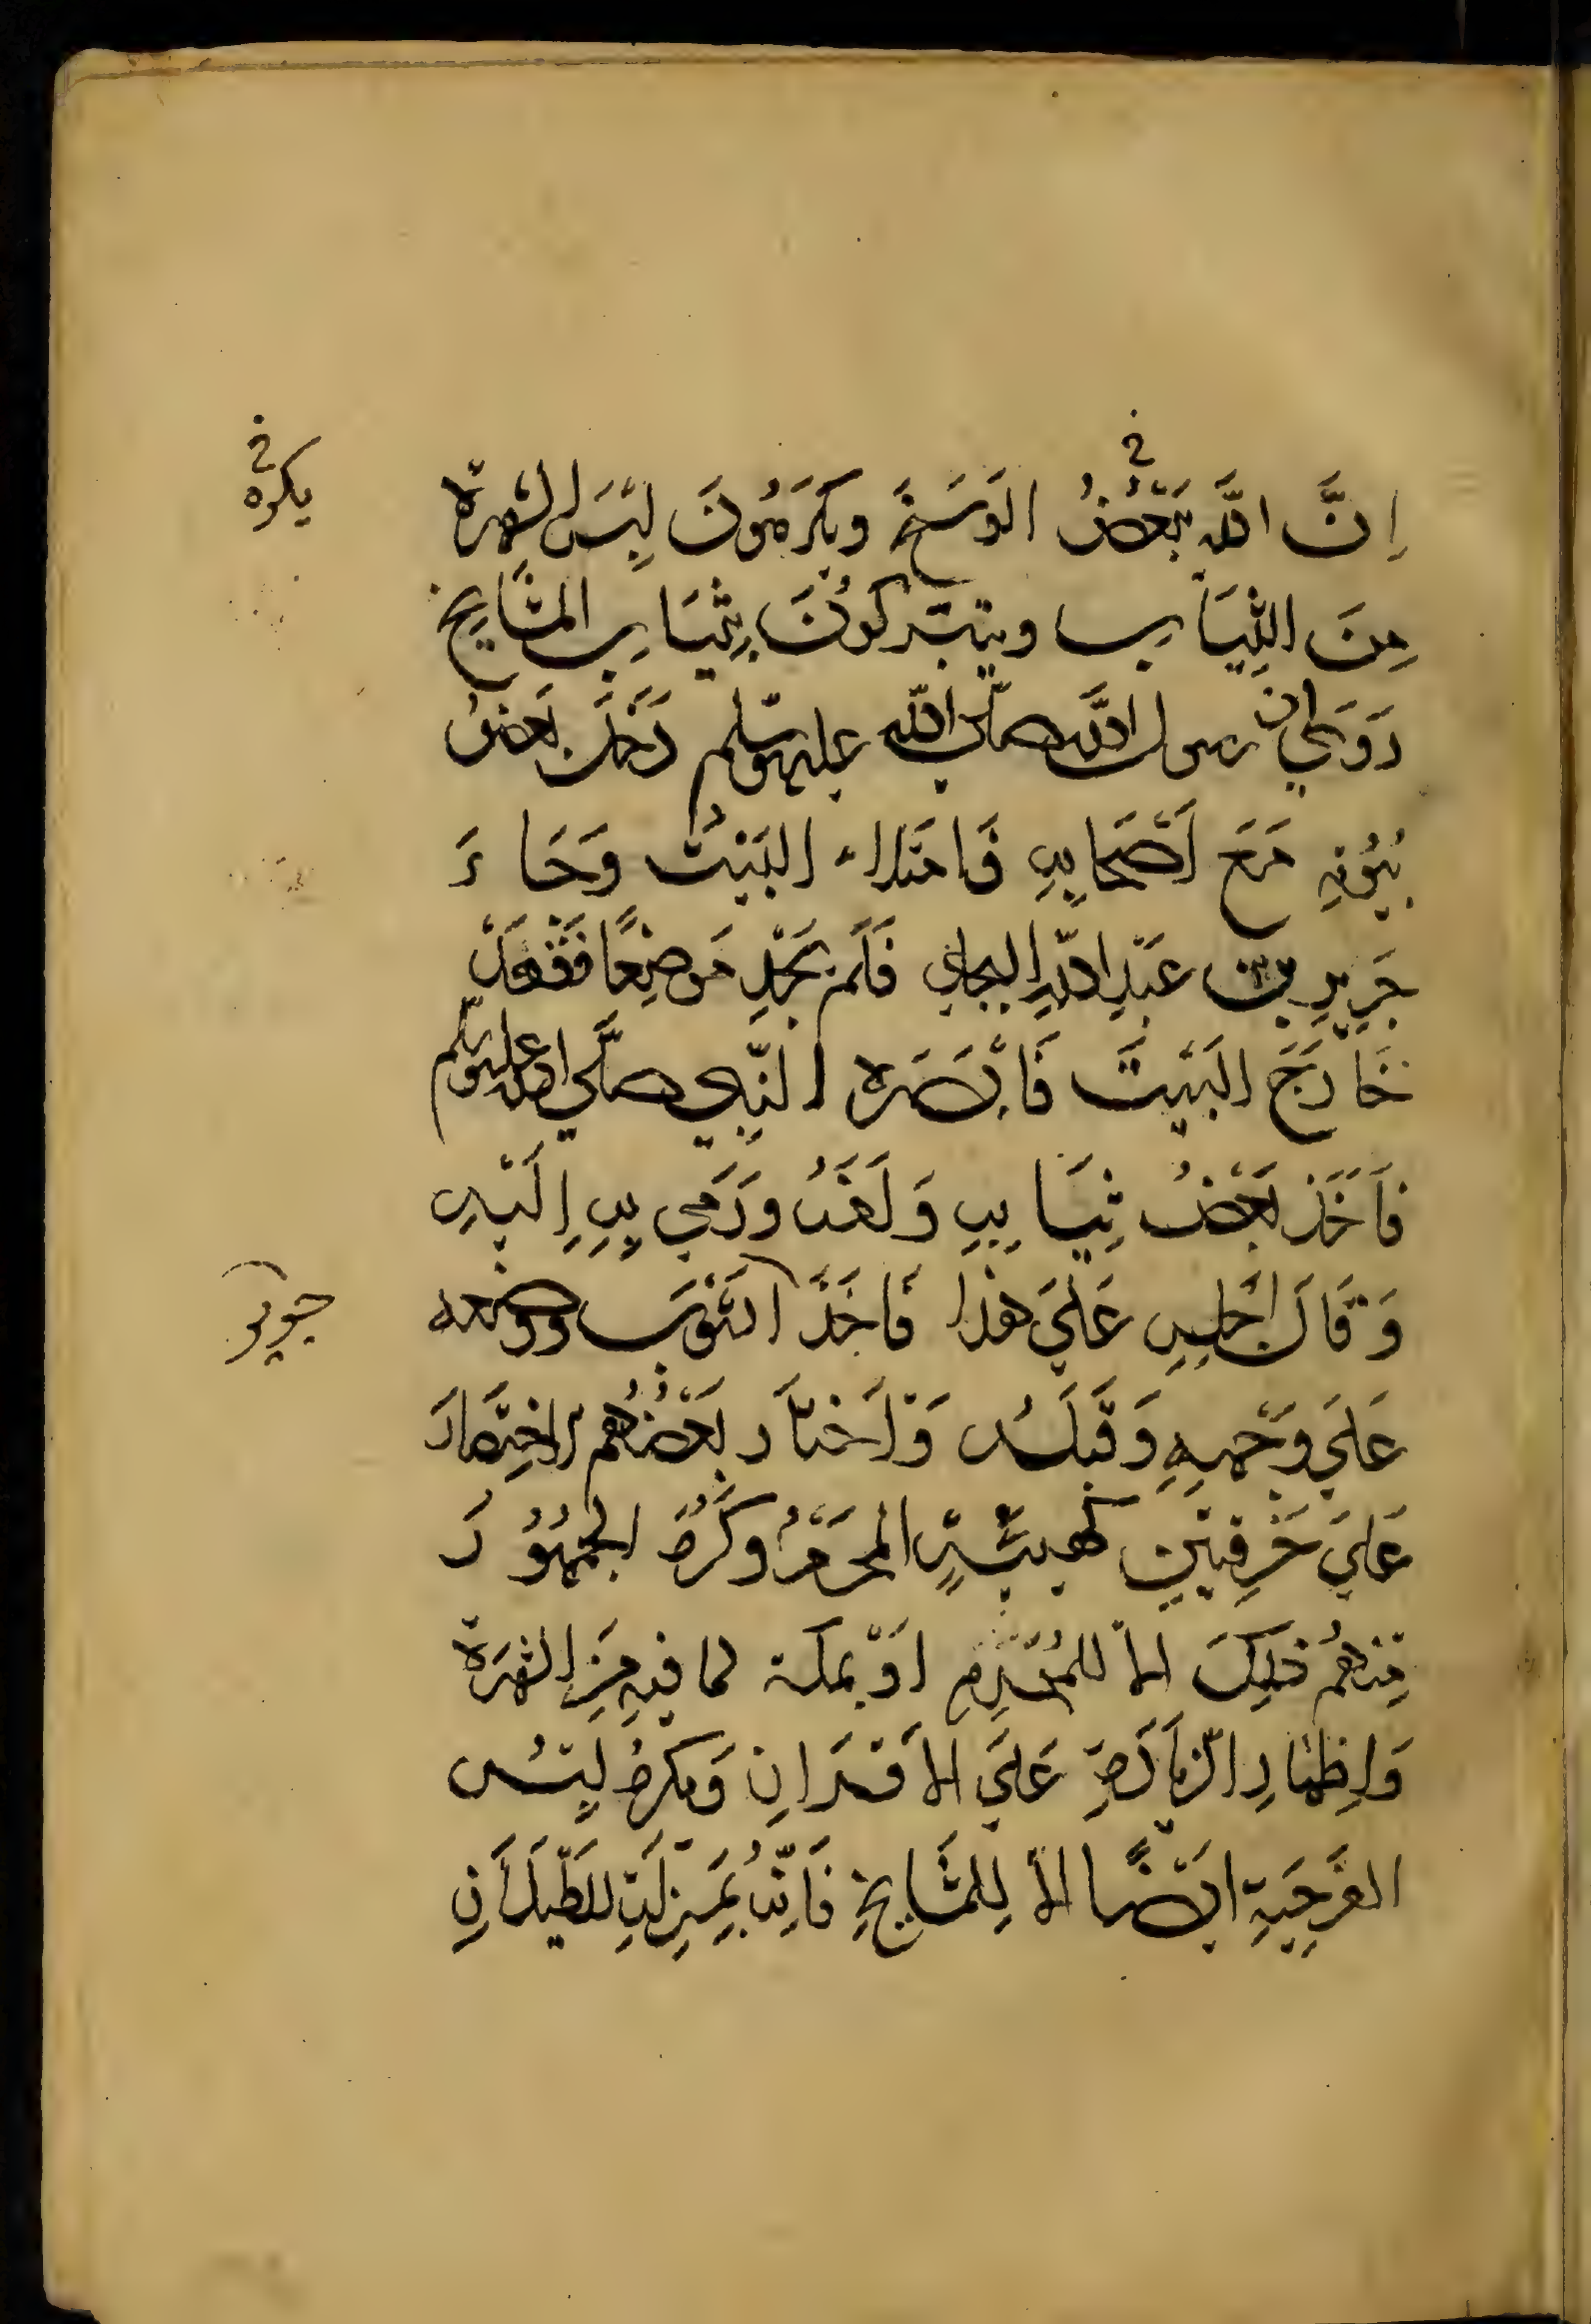 إِنَّ اللَّهَ يَبْغُضُ الوَسَخَ ويَكْرَهُونَ لِبْسَ الشهرة
مِنَ الثِّيَابِ ويتبَرَّكُونَ بِثِيَابِ المَشَايخ
رَوَي ان رسول اللَّه صلّي اللّه عليه وسلم دَخَلَ بَعضَ
بُيُوتِهِ مَعَ أَصْحَابِهِ فَامْتَلاءَ البَيْتُ وَجَاءَ
جَرِيرِ بن عَبْدِ اللّهِ البجلي فَلَمْ يَجِدْ مَوضِعًا فَقَعَدَ
خَارِجَ البَيْتَ فَأَبْصَرَه النَّبِي صلَّي الله عليه وسلم
فَأَخَذَ بَعْضُ ثِيَابِهِ وَلَفَّهُ وَرَمي بِهِ إِلَيْهِ
وَقَالَ اجْلِسِ عَلَي هَذا فَأَخَذَ الثَوْبَ ووضعه
عَلَي وَجْهِهِ وَقَبَّلَهُ وَاَختَارَ بَعْضُهُم الاختِصَارَ
عَلَي خَرِقتَينِ كهيئةِ المحرَمُ وكَرِهَ الجُمْهُوُرَ
مِنهُم ذَلِكَ الاّ للمُحْرِمِ اَوْ بمكة لما فيهِ مِنَ الشهرَة
وَاِظهَارِ الزيَادَةِ عَلَي الاَقْرَانِ وَيكرهُ لُبْسُ
الفَرَجَيةِ أَيْضًا الاَّ لِلمَشَايخِ فَاِنَّهُ بِمَنزِلَةِ للطَّيلَسَانِ
يكره خ